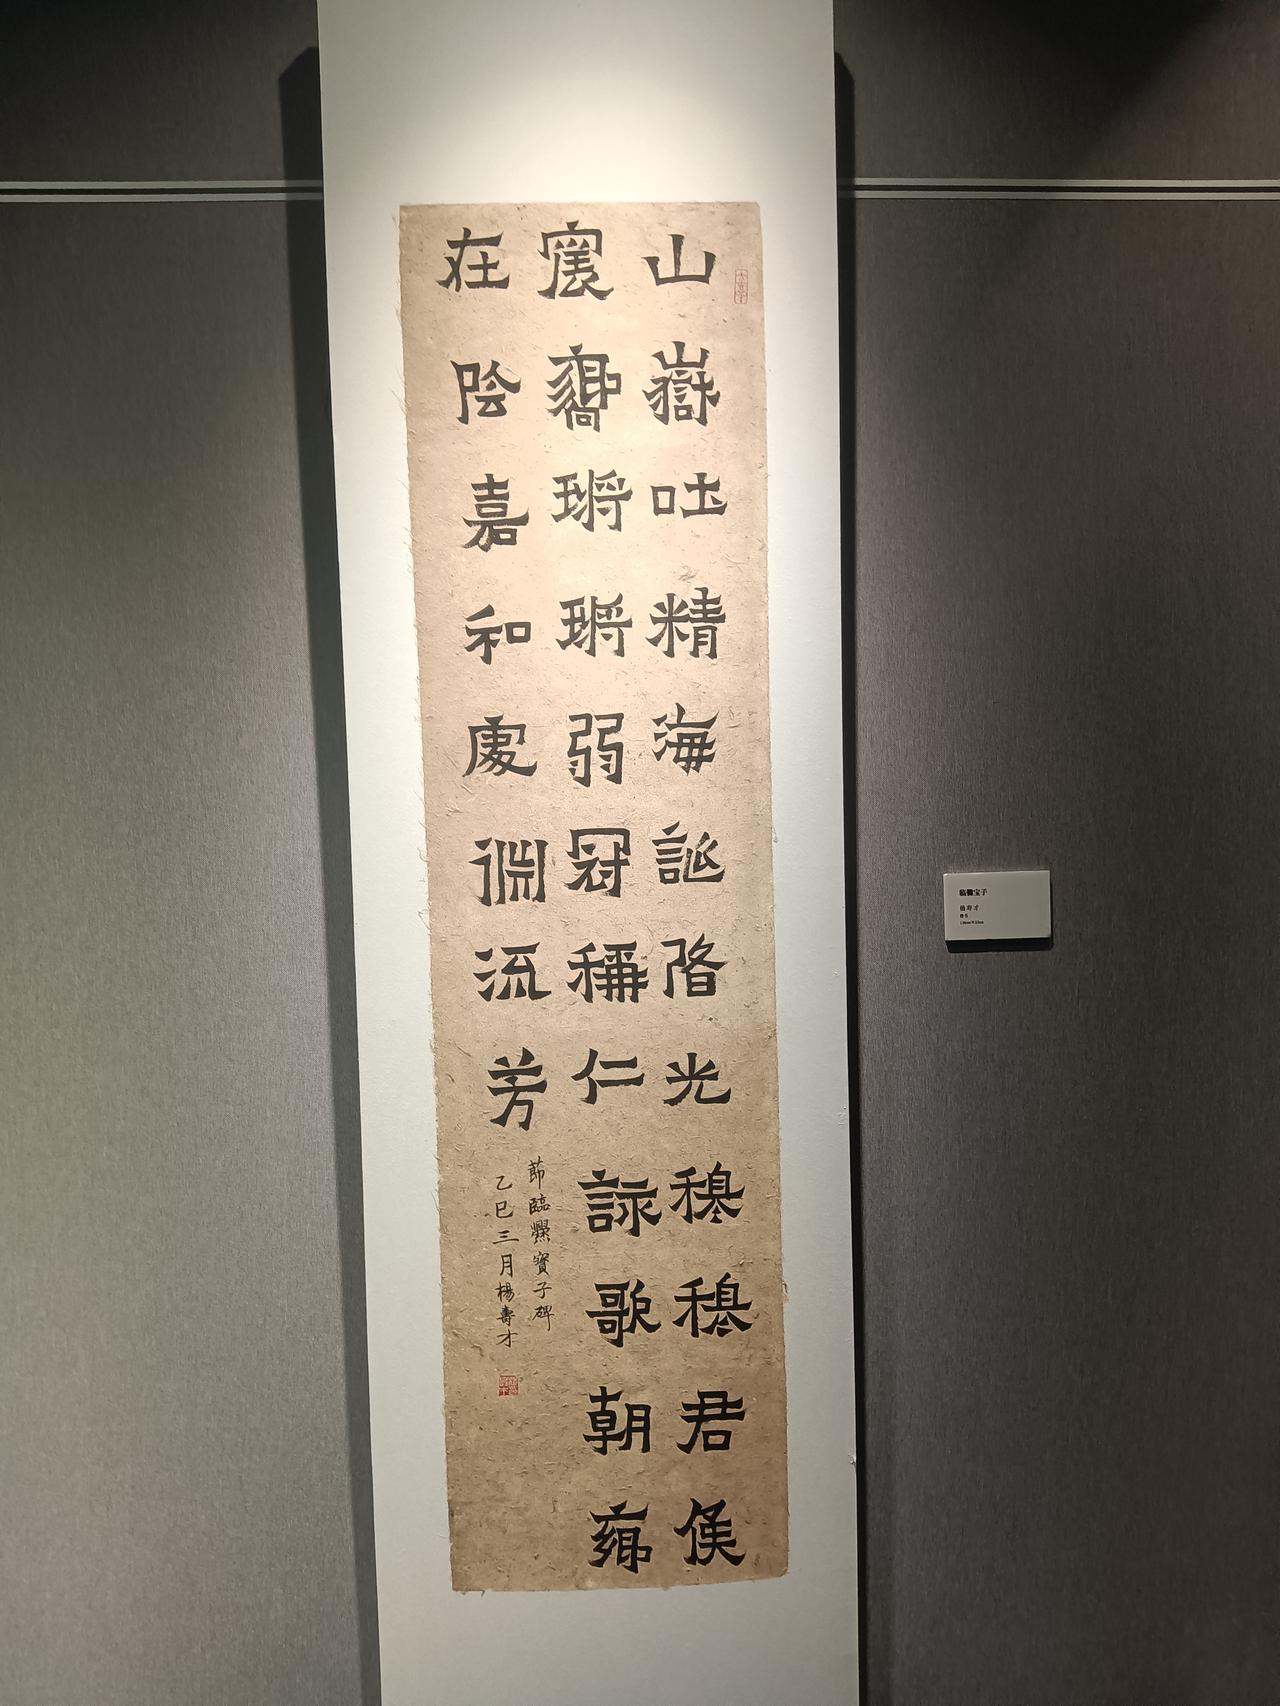 山嶽吐精海誕陷光穆穆君侯
震響鏘鏘弱冠稱仁詠歌朝鄉
在陰嘉和處淵流芳
節臨爨寶子碑
乙巳三月楊壽才
临爨宝子
杨寿才